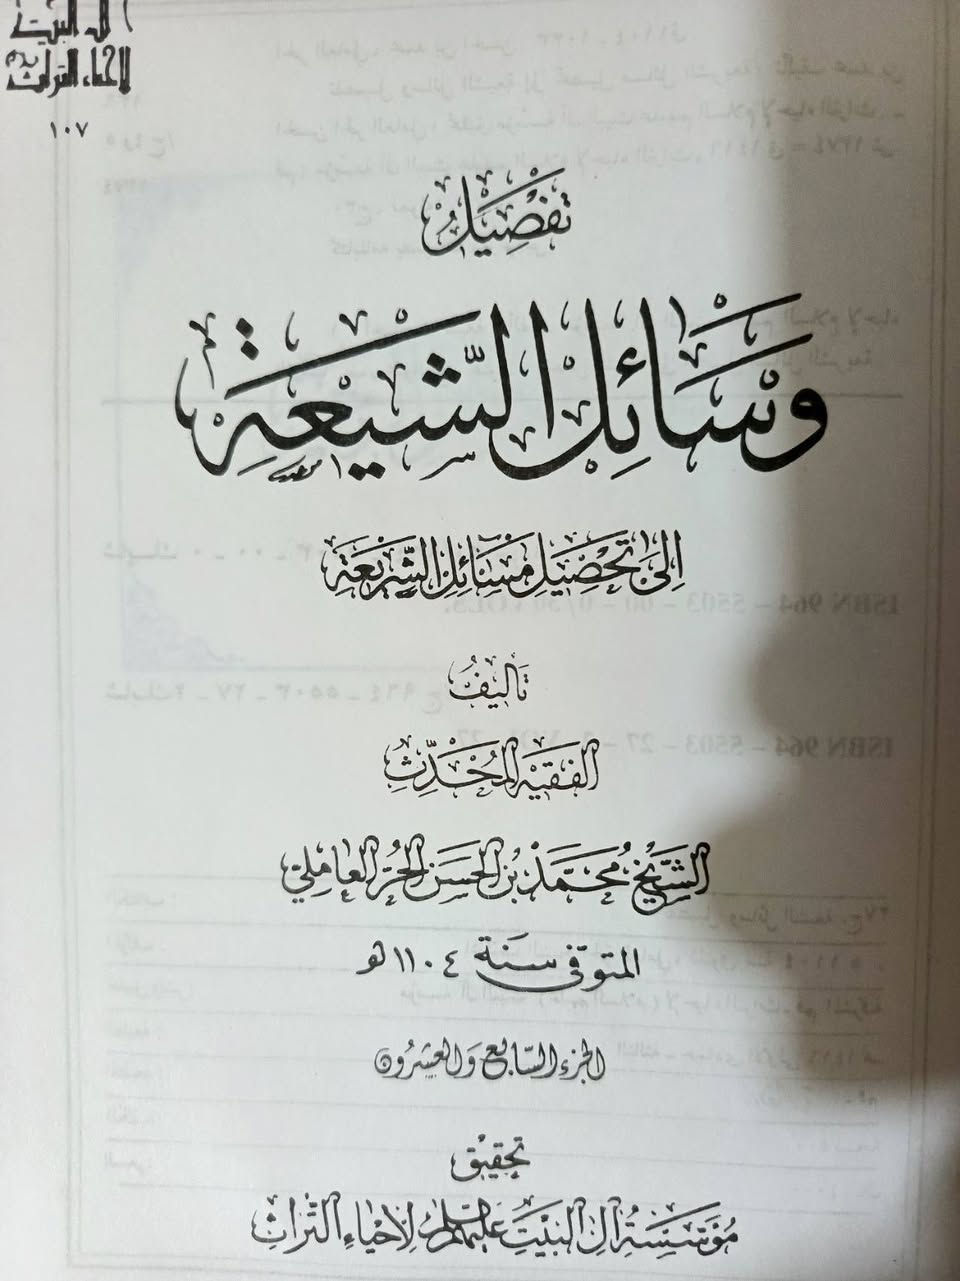 آل البيت
لإحياء التراث
١٠٧
تفصيل
وسائل الشيعة
إلى تحصيل مسائل الشريعة
تأليف
الفقيه المحدث
الشيخ محمد بن الحسن الحر العاملي
المتوفى سنة ١١٠٤ هـ
الجزء السابع والعشرون
تحقيق
مؤسسة آل البيت عليهم السلام لإحياء التراث